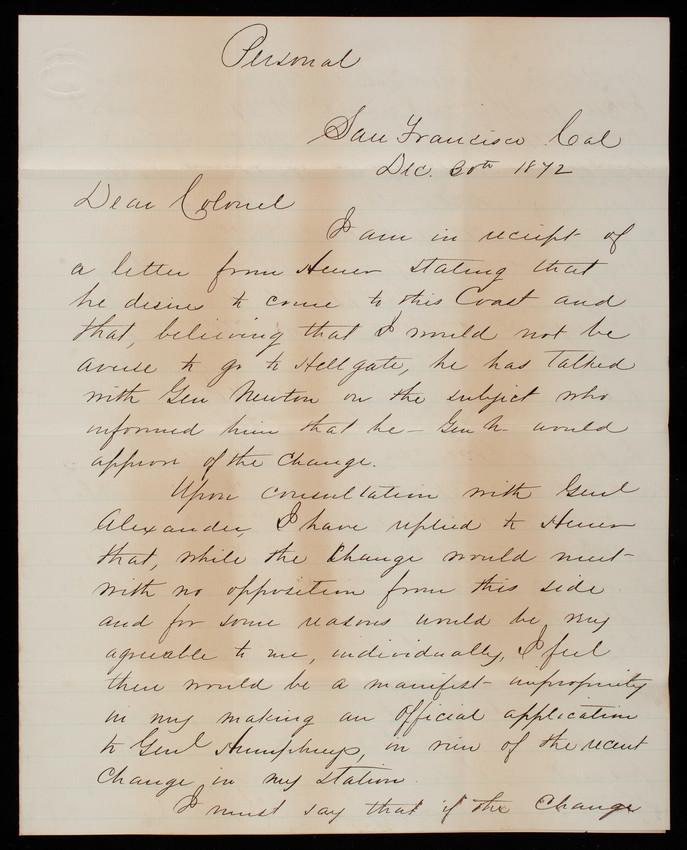 Personal
San Francisco Cal
Dec. 30th 1872
Dear Colonel
I am in receipt of
a letter from Heuer stating that
he desires to come to this Coast and
that, believing that I would not be
averse to go to Hellgate, he has talked
with Gen Newton on the subject who
informed him that he - Gen N - would
approve of the change.
Upon consultation with Genl
Alexander, I have replied to Heuer
that, while the change would meet
with no opposition from this side
and for some reasons would be very
agreeable to me, individually, I feel
there would be a manifest impropriety
in my making an official application
to Genl Humphreys, in view of the recent
change in my station.
I must say that if the change